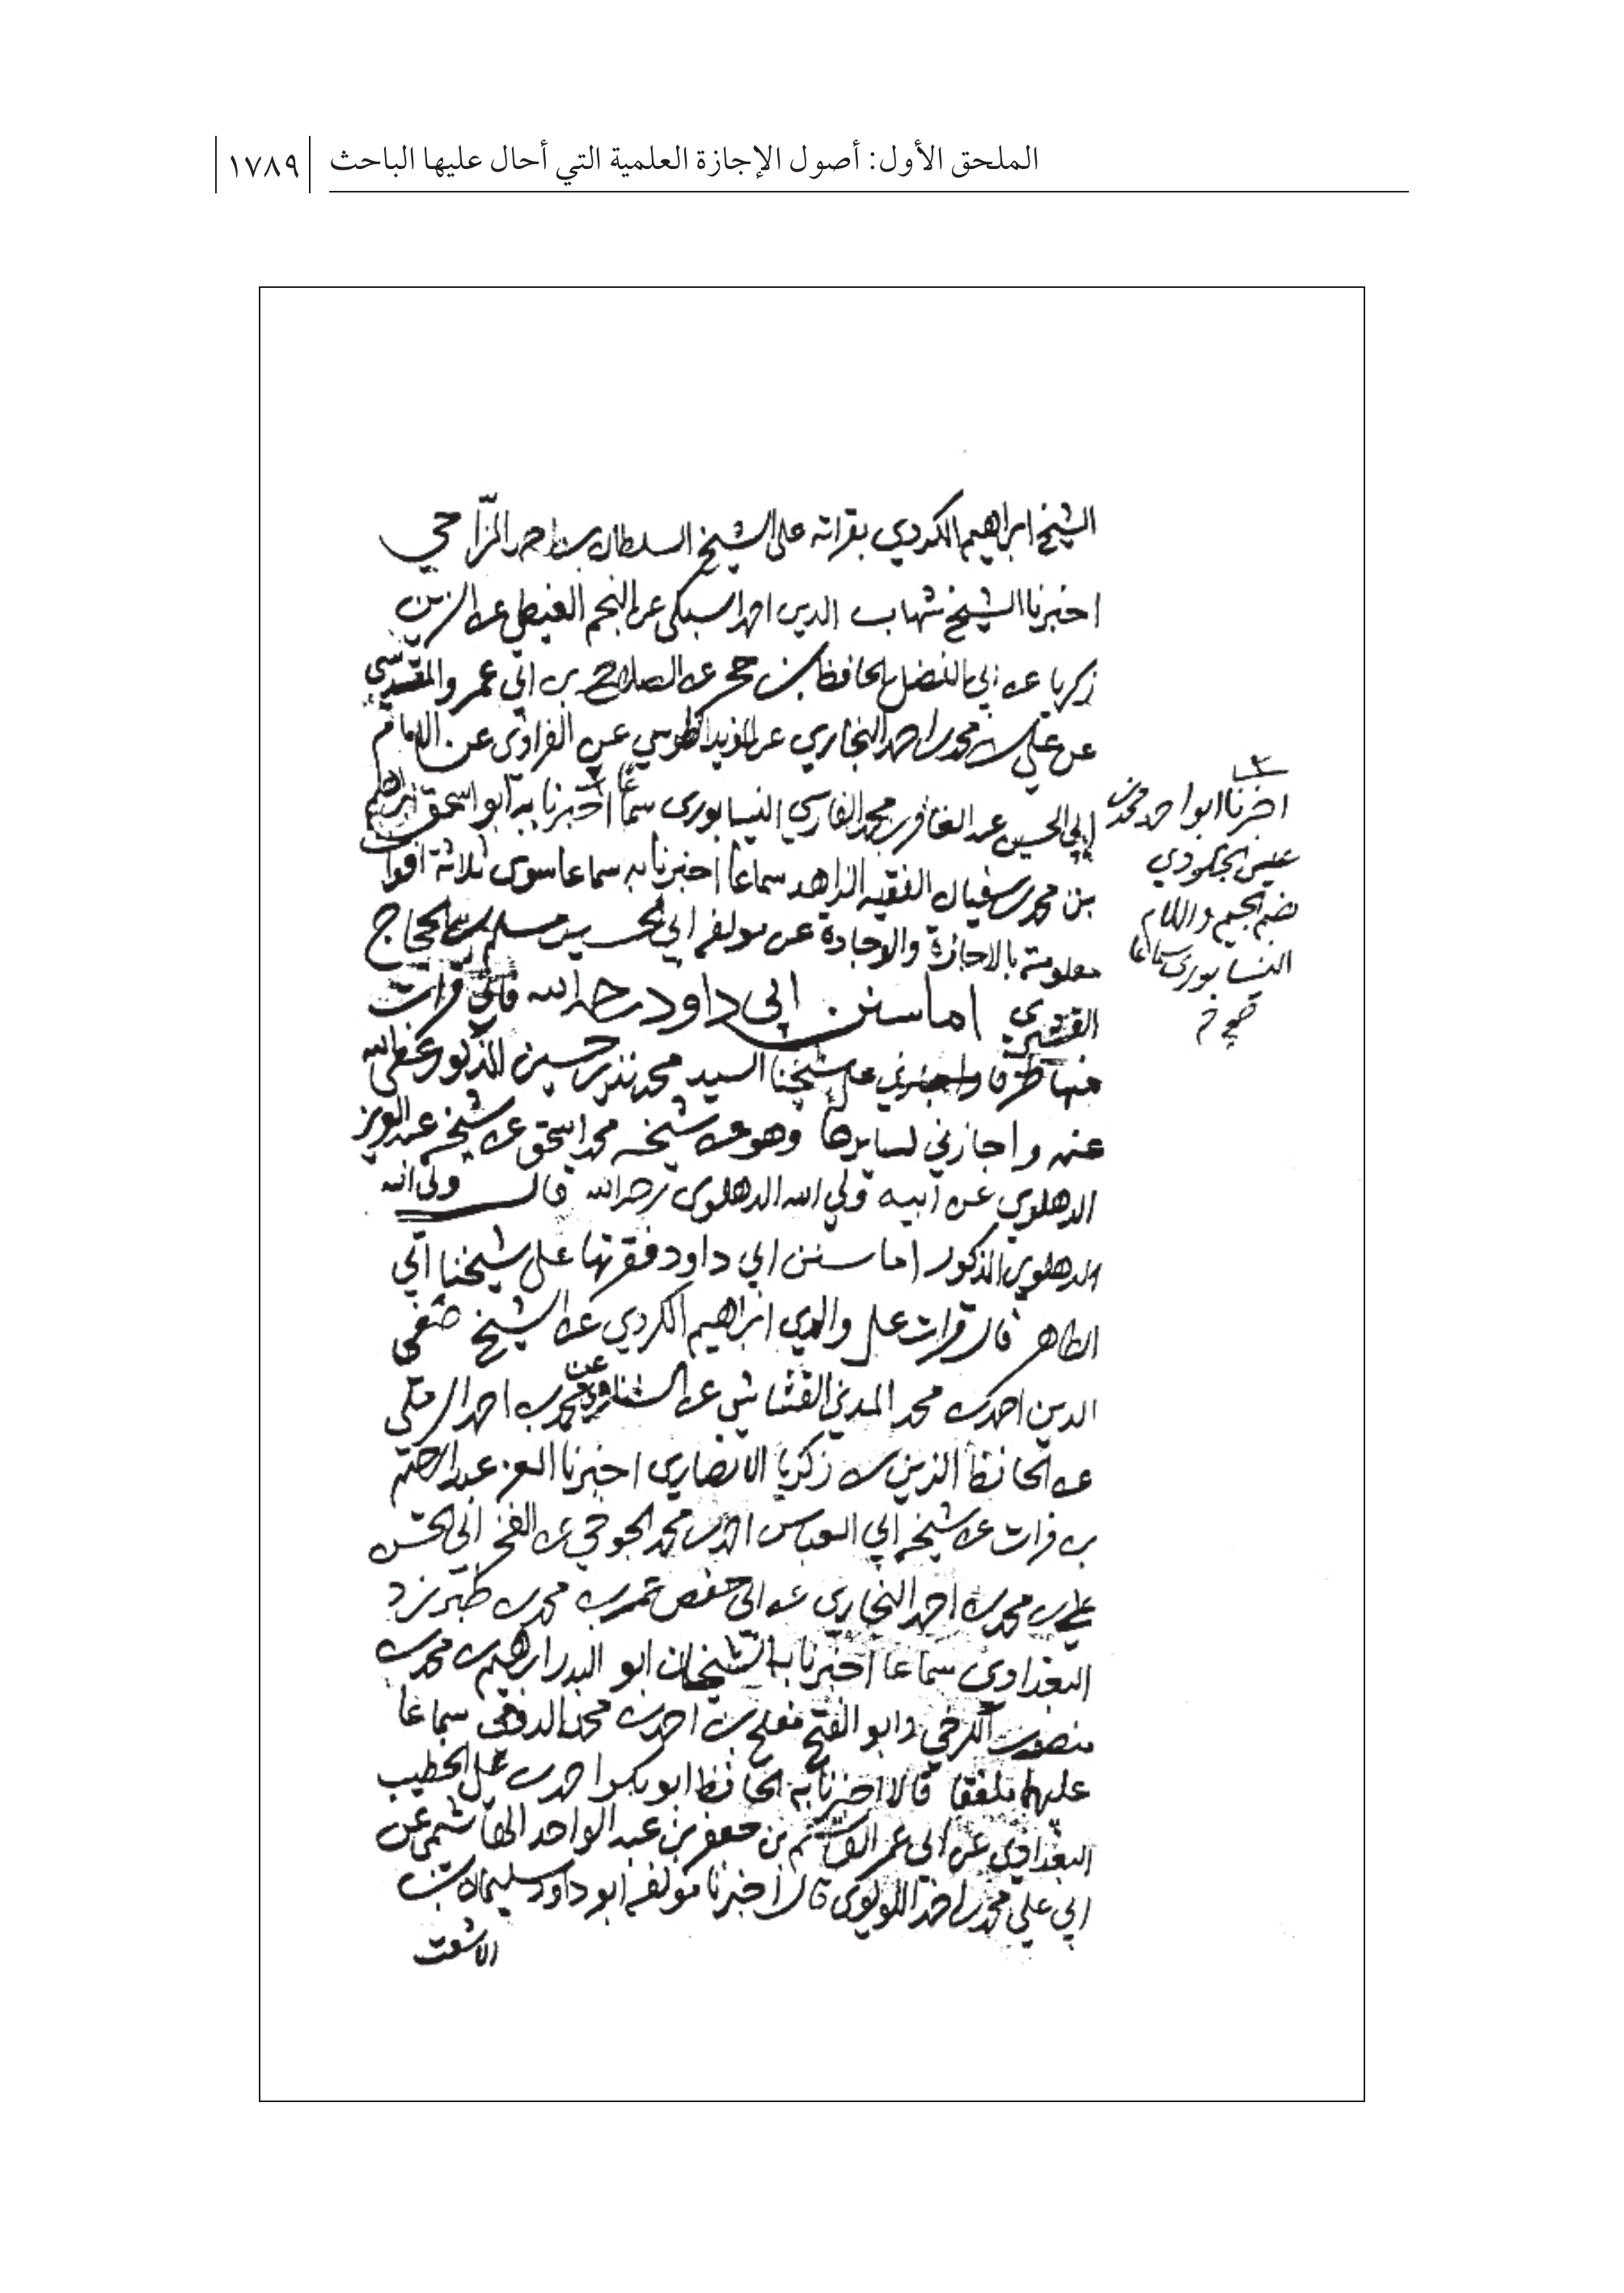 الملحق الأول: أصول الإجازة العلمية التي أحال عليها الباحث
١٧٨٩
الشيخ ابراهيم الكردي بقراته على الشيخ السلطان بن احمد المزّاحي
اخبرنا الشيخ شهاب الدين احمد السبكي عن النجم الغيطي عن الزين
زكريا عن ابي الفضل الحافظ بن حجر عن الصلاح بن ابي عمر والمقدسي
عن علي بن محمد بن احمد البخاري عن المؤيد الطوسي عن الفراوى عن الامام
ابي الحسين عبد الغافر بن محمد الفارسي النيسابورى سماعا اخبرنا به ابو اسحق ابراهيم
بن محمد بن سفيان الفقيه الزاهد سماعا اخبرنا به سماعا سوى ثلاثة افوات
معلومة بالاجازة والوجادة عن مولفه ابي الحسين مسلم بن الحجاج
القشيرى اما سنن ابي داود رحمه الله فاني قرات
منها طرفا على شيخنا السيد محمد نذير حسين المذكور عفى الله
عنه واجازني لسايرها وهو عن شيخه محمد اسحق عن شيخه عبد العزيز
الدهلوي عن ابيه ولي الله الدهلوى رحمه الله قال ولى الله
الدهلوى المذكور اما سنن ابي داود فقرتها على شيخنا ابي
الطاهر قال قرات على والدي ابراهيم الكردي عن الشيخ صفي
الدين احمد بن محمد المدني القشاشي عن الشناوي عن محمد بن احمد الرملي
عن الحافظ الزين زكريا الانصارى اخبرنا العز عبد الرحيم
بن فرات عن شيخه ابي العباس احمد بن محمد الجوخي عن الفخر ابي الحسن
علي بن محمد بن احمد البخارى عن ابي حفص عمر بن محمد بن طبرزد
البغدادى سماعا اخبرنا به الشيخان ابو البدر ابراهيم بن محمد بن
منصور الكرخي وابو الفتح مفلح بن احمد بن محمد الدومى سماعا
عليهما ملفقا قالا اخبرنا به الحافظ ابو بكر احمد بن علي الخطيب
البغدادي عن ابي عمر القاسم بن جعفر بن عبد الواحد الهاشمي عن
ابي علي محمد بن احمد اللولوى قال اخبرنا مولفه ابو داود سليمان بن
الاشعث
اخبرنا ابو احمد محمد بن
عيسى الجلودي
بضم الجيم واللام
النيسابورى سماعا
صح